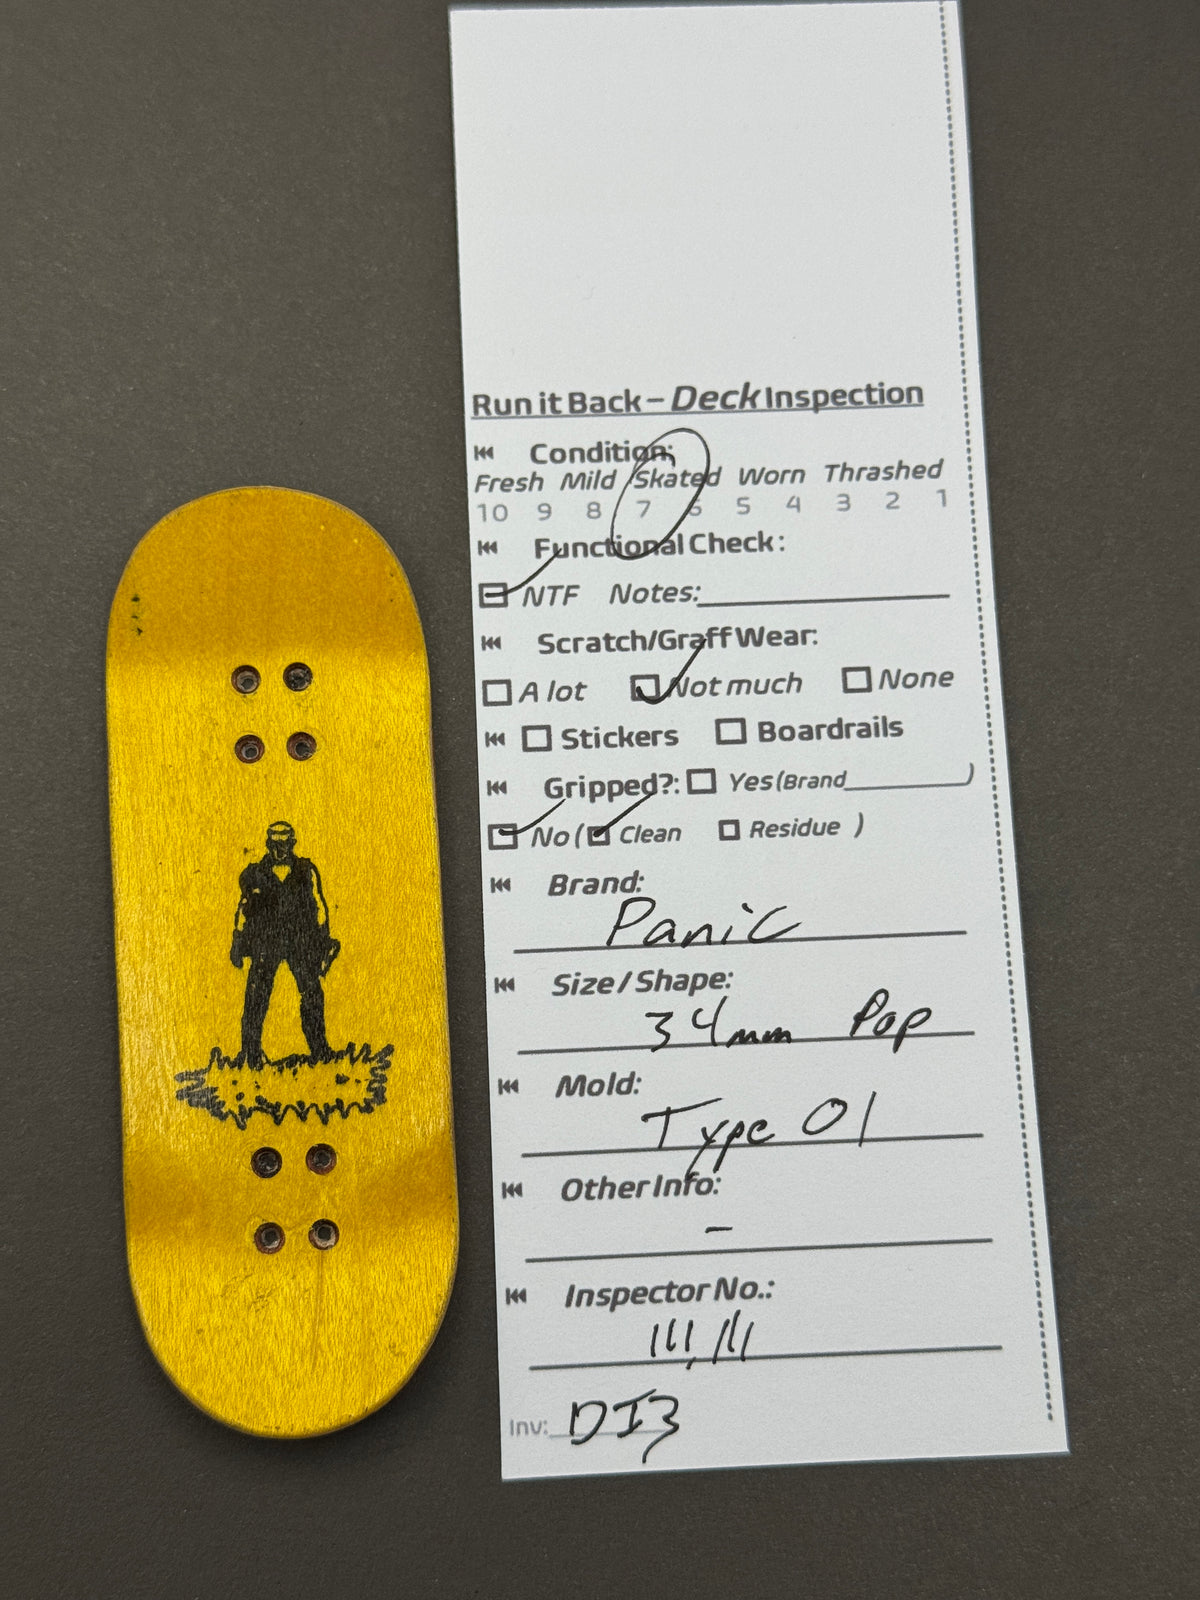 Run it Back – Deck Inspection
Condition:
Fresh Mild Skated Worn Thrashed
10 9 8 7 6 5 4 3 2 1
Functional Check:
NTF Notes:
Scratch/Graff Wear:
A lot Not much None
Stickers Boardrails
Gripped?: Yes (Brand )
No ( Clean Residue )
Brand:
Panic
Size / Shape:
34mm Pop
Mold:
Type 01
Other Info:
–
Inspector No.:
Inv: DI3